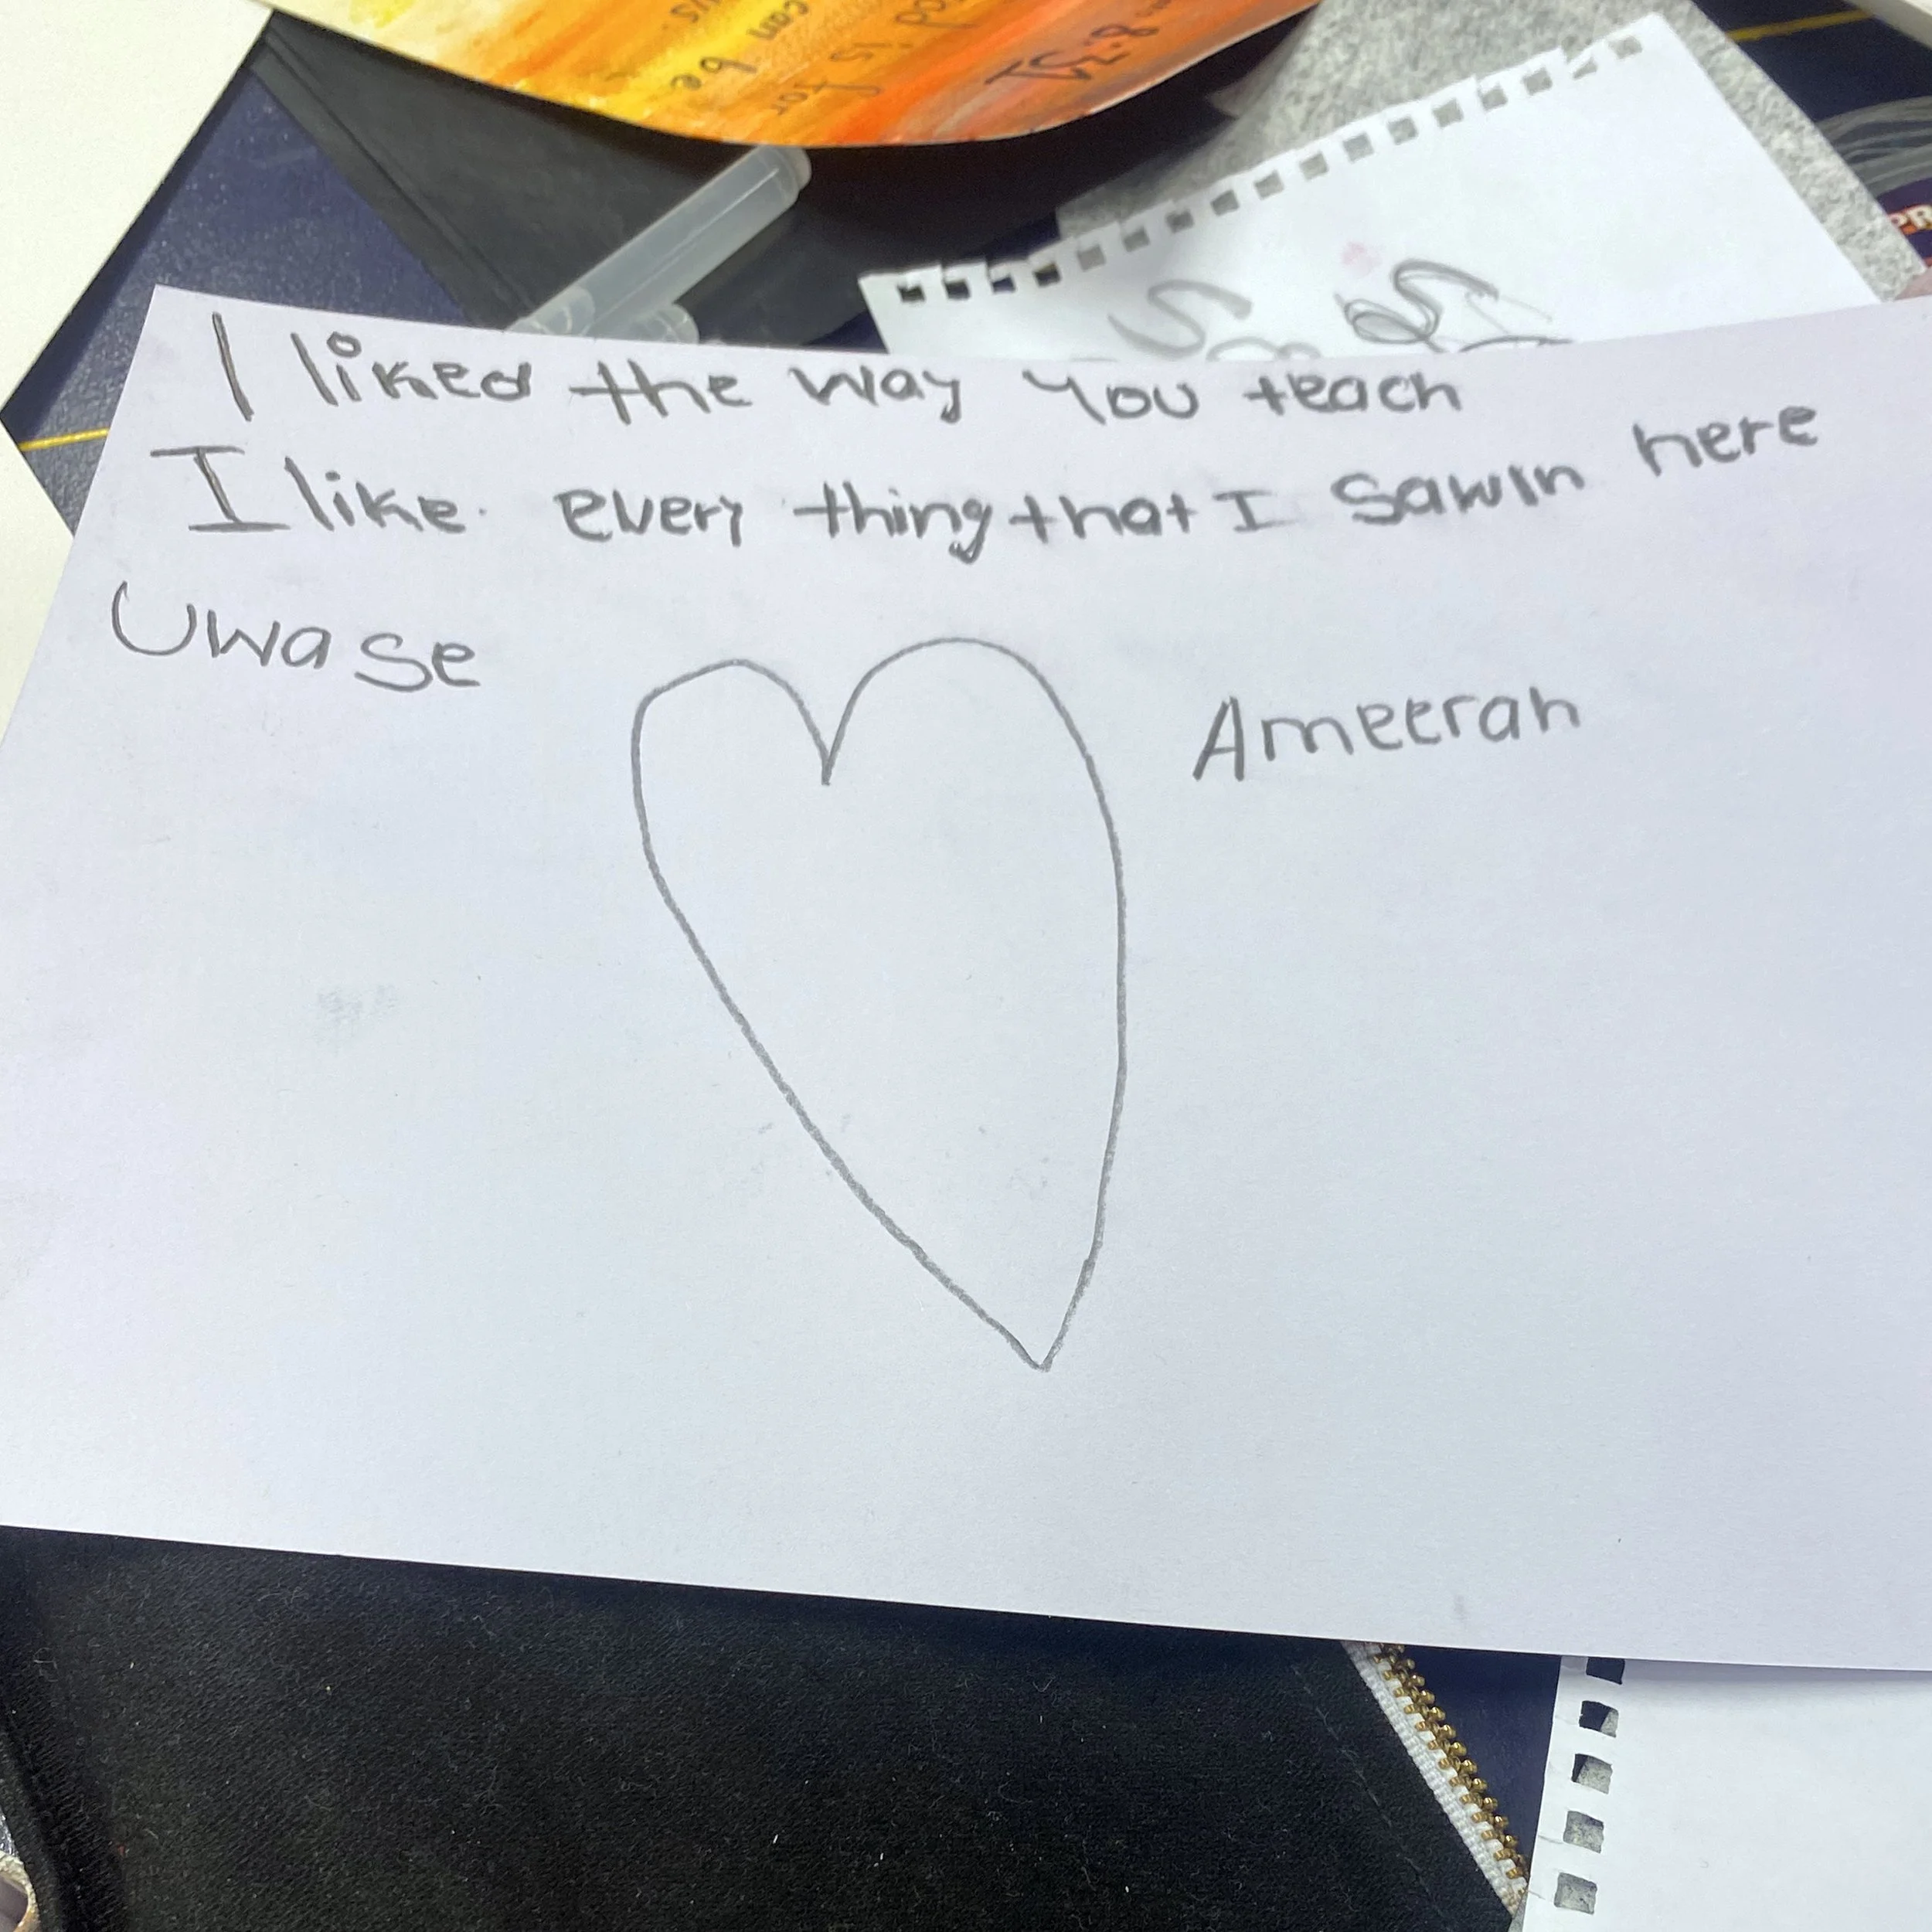 us.
can be
is for
8:31
I liked the way you teach
I like every thing that I saw in here
Uwase
Ameerah